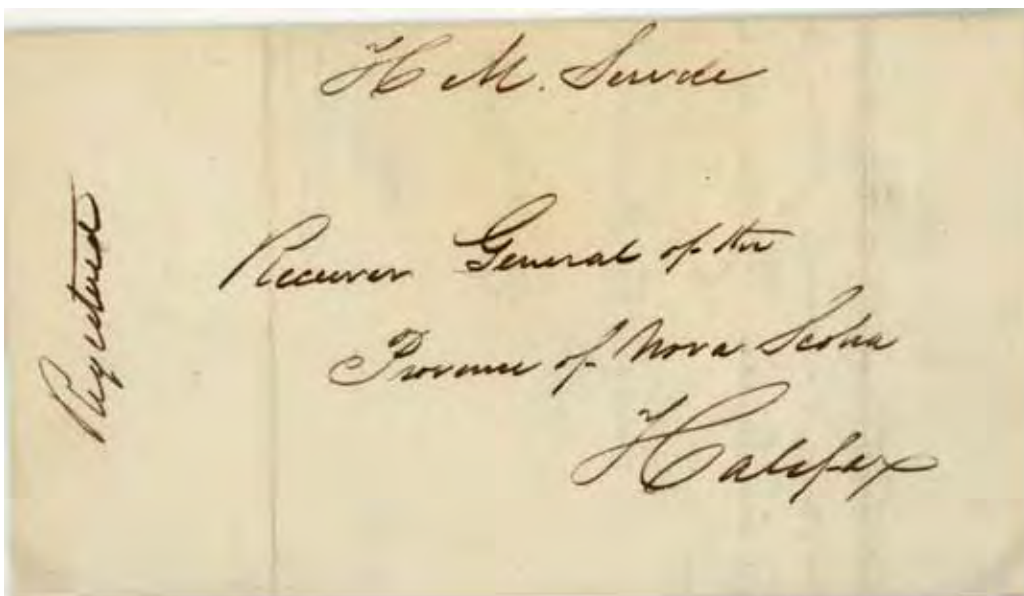 H M. Service
Registered
Receiver General of the
Province of Nova Scotia
Halifax